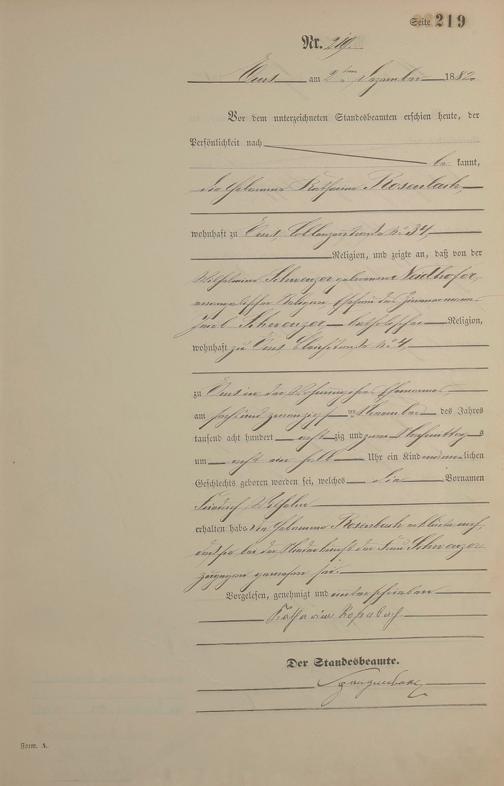 Seite 219
Nr. 219.
Ems am 2ten Dezember 1882
Vor dem unterzeichneten Standesbeamten erschien heute, der
Persönlichkeit nach
be kannt,
die Hebamme Katharina Rosenbach
wohnhaft zu Ems, Coblenzerstraße No 34,
Religion, und zeigte an, daß von der
Wilhelmine Schwenzer geborenen
evangelischer Religion, Ehefrau des Zimmermanns
Jacob Schwenzer, katholischer Religion,
wohnhaft zu Ems No 4
zu Ems in der Wohnung ihres Ehemannes,
am November des Jahres
tausend acht hundert acht zig und zwei Nachmittags
um acht ein halb Uhr ein Kind männlichen
Geschlechts geboren worden sei, welches die Vornamen
Friedrich Wilhelm
erhalten habe die Hebamme Rosenbach erklärte noch,
daß sie bei der Niederkunft der Frau Schwenzer
zugegen gewesen sei.
Vorgelesen, genehmigt und unterschrieben
Katharina Rosenbach
Der Standesbeamte.
Form. A.